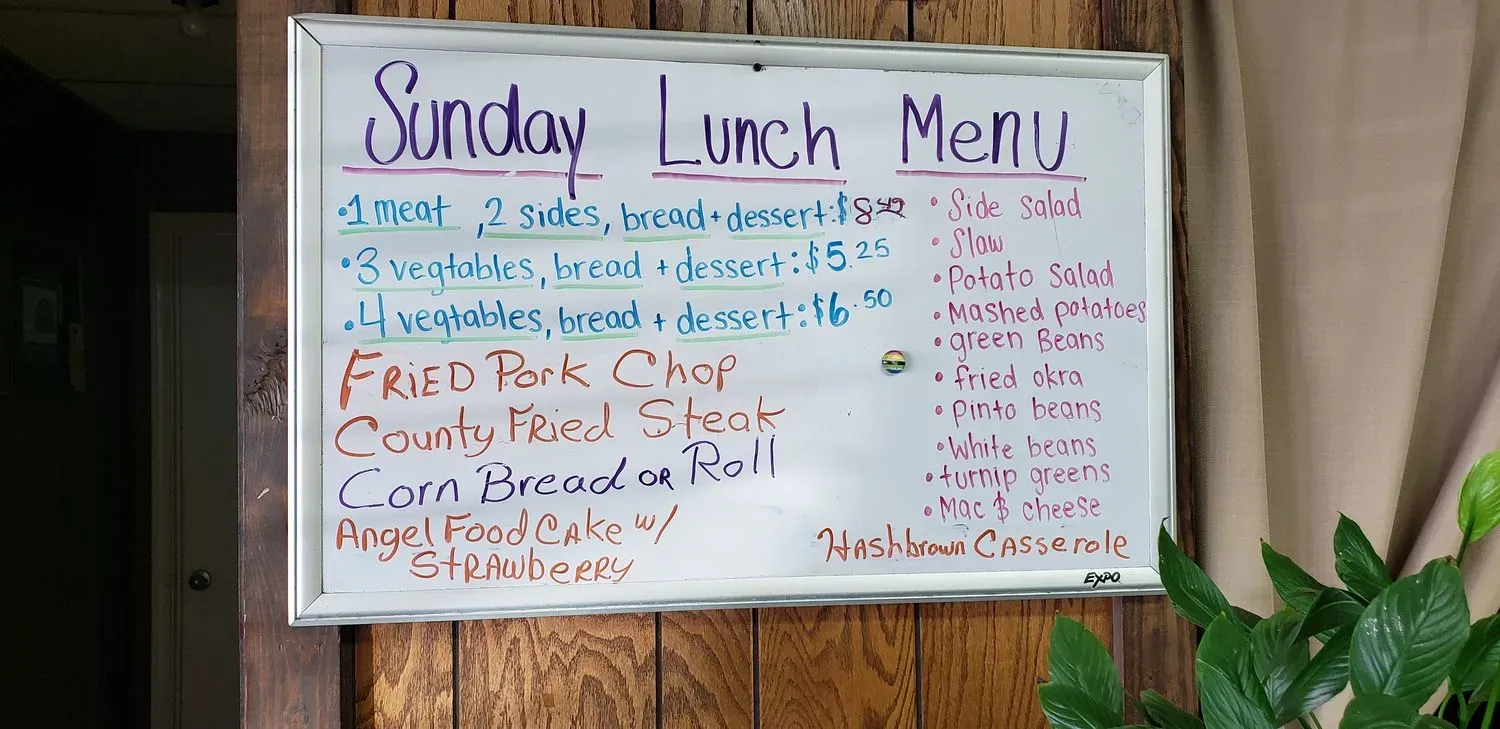 Sunday Lunch Menu
•1 meat ,2 sides, bread + dessert: $8.49
•3 vegtables, bread + dessert: $5.25
•4 vegtables, bread + dessert: $6.50
FRiED Pork Chop
County FRied Steak
Corn Bread OR Roll
Angel Food CAke w/
StRAWbeRRY
• Side salad
• Slaw
• Potato Salad
• Mashed potatoes
• green Beans
• fried okra
• pinto beans
• White beans
• turnip greens
• Mac & cheese
Hashbrown CAsserole
EXPO